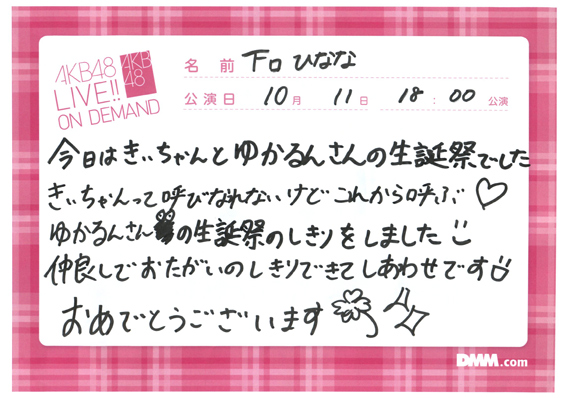 AKB48
LIVE!!
ON DEMAND
AKB
48
名前 下口ひなな
公演日 10月 11日 18:00 公演
今日はきぃちゃんとゆかるんさんの生誕祭でした
きぃちゃんって呼びなれないけどこれから呼ぶ♡
ゆかるんさんの生誕祭のしきりをしました
仲良しでおたがいのしきりできてしあわせです
おめでとうございます
DMM.com